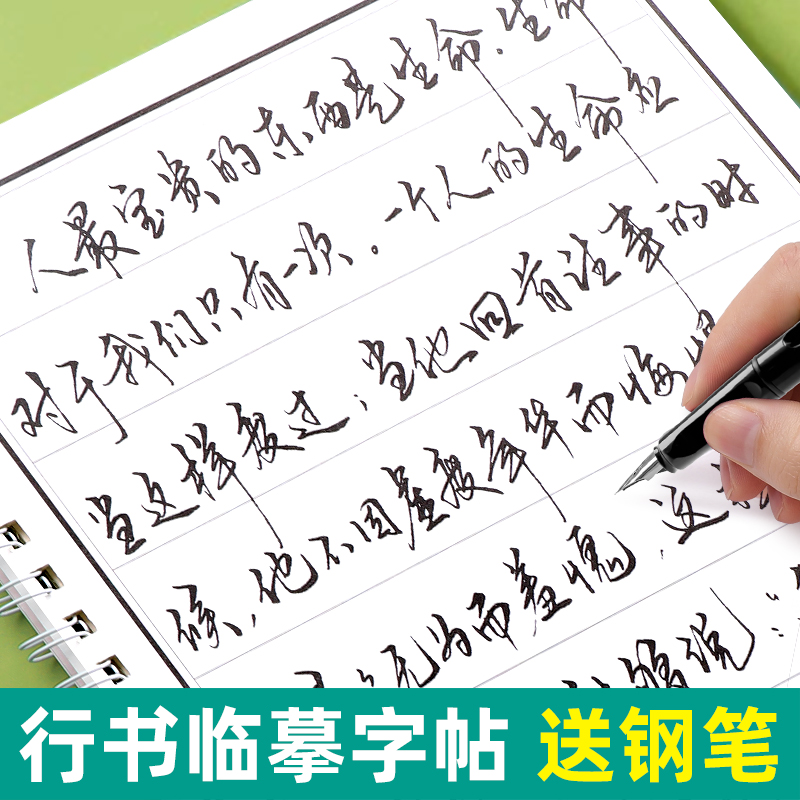 人最宝贵的东西是生命。生命
对于我们只有一次。一个人的生命应
当这样度过：当他回首往事的时
候，他不因虚度年华而悔恨
无为而羞愧，这样
够说：“
行书临摹字帖 送钢笔